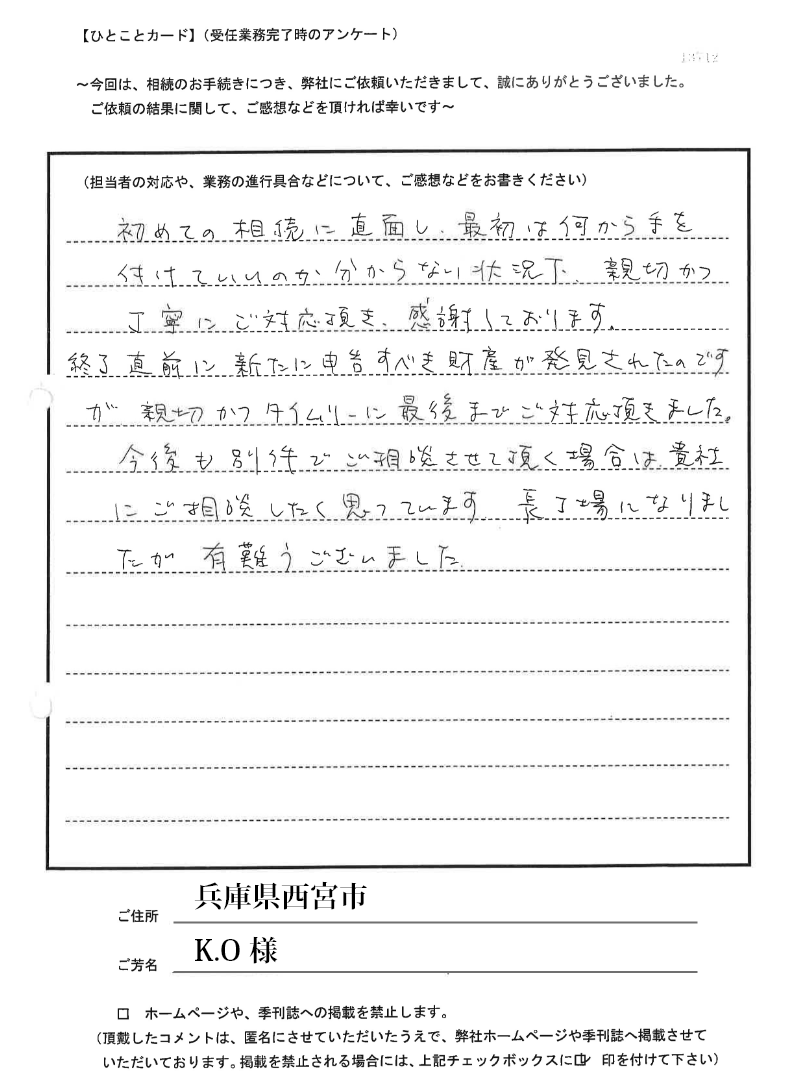 【ひとことカード】（受任業務完了時のアンケート）
～今回は、相続のお手続きにつき、弊社にご依頼いただきまして、誠にありがとうございました。
ご依頼の結果に関して、ご感想などを頂ければ幸いです～
（担当者の対応や、業務の進行具合などについて、ご感想などをお書きください）
初めての相続に直面し、最初は何から手を
付けていいのか分からない状況下、親切かつ
丁寧にご対応頂き、感謝しております。
終了直前に新たに申告すべき財産が発見されたのです
が、親切かつタイムリーに最後までご対応頂きました。
今後も別件でご相談させて頂く場合は、貴社
にご相談したく思っています。長丁場になりまし
たが、有難うございました。
ご住所 兵庫県西宮市
ご芳名 K.O 様
□ ホームページや、季刊誌への掲載を禁止します。
（頂戴したコメントは、匿名にさせていただいたうえで、弊社ホームページや季刊誌へ掲載させて
いただいております。掲載を禁止される場合には、上記チェックボックスに☑ 印を付けて下さい）